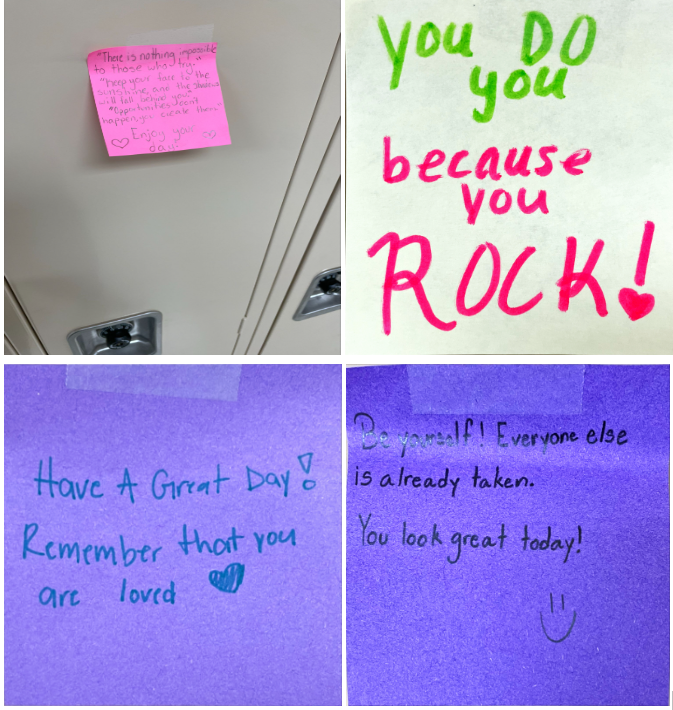 "There is nothing impossible
to those who try."
"Keep your face to the
sunshine, and the shadows
will fall behind you."
"Opportunities don't
happen, you create them."
Enjoy your
day!
You DO
you
because
you
ROCK!
Have A Great Day!
Remember that you
are loved
Be yourself! Everyone else
is already taken.
You look great today!